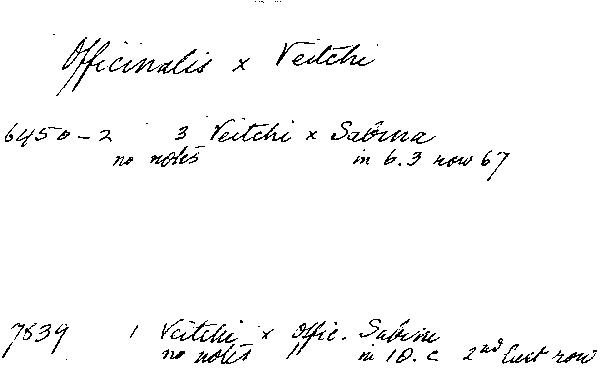 Officinalis x Veitchi
6450-2 3 Veitchi x Sabina
no notes in 6.3 row 67
7839 1 Veitchi x Offic. Sabini
no notes in 10.c 2nd last row